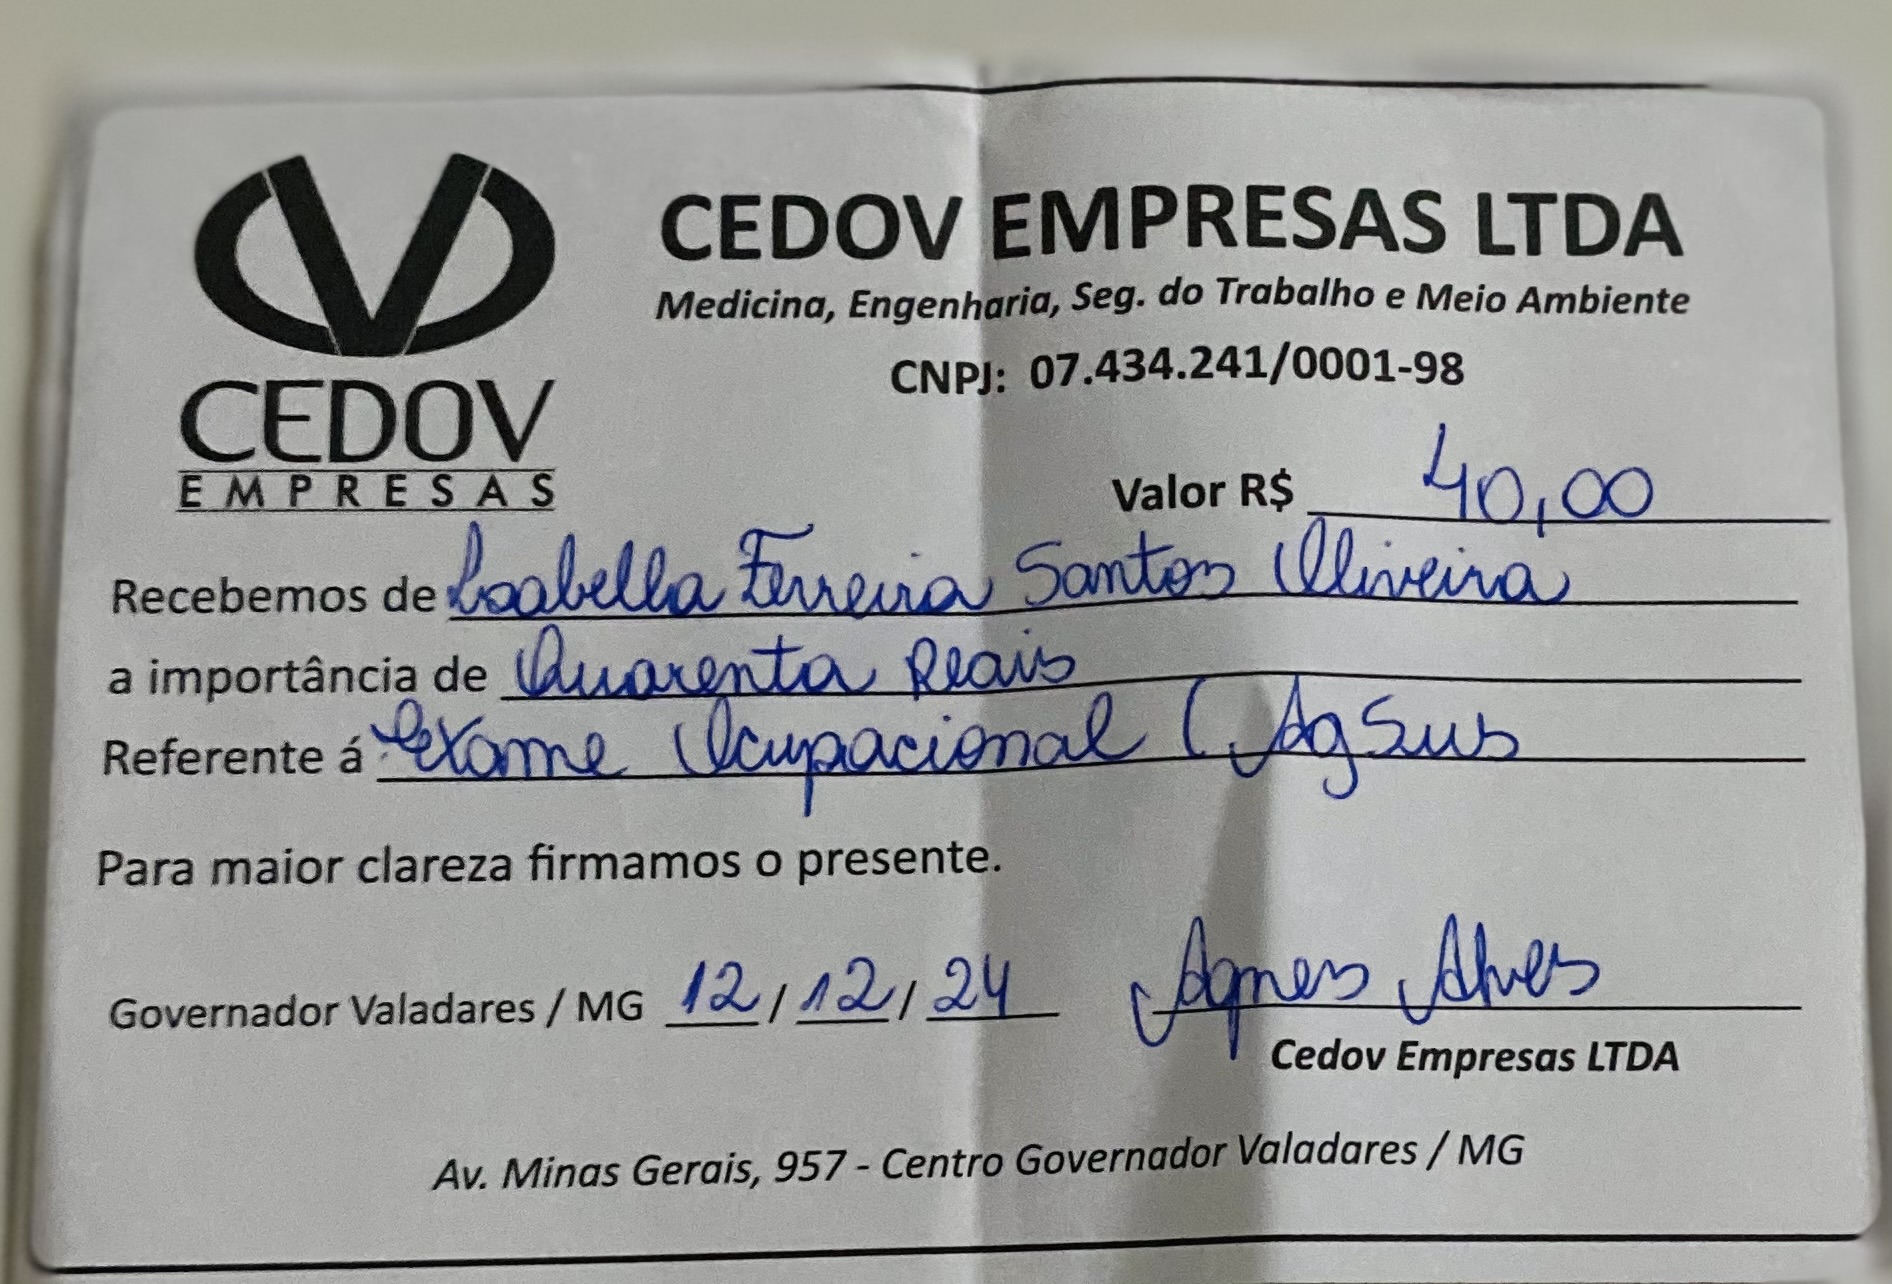 CEDOV
EMPRESAS
CEDOV EMPRESAS LTDA
Medicina, Engenharia, Seg. do Trabalho e Meio Ambiente
CNPJ: 07.434.241/0001-98
Valor R$ 40,00
Recebemos de Isabella Ferreira Santos Oliveira
a importância de Quarenta Reais
Referente á Exame Ocupacional ( AgSus
Para maior clareza firmamos o presente.
Governador Valadares / MG 12 / 12 / 24 Agnes Alves
Cedov Empresas LTDA
Av. Minas Gerais, 957 - Centro Governador Valadares / MG